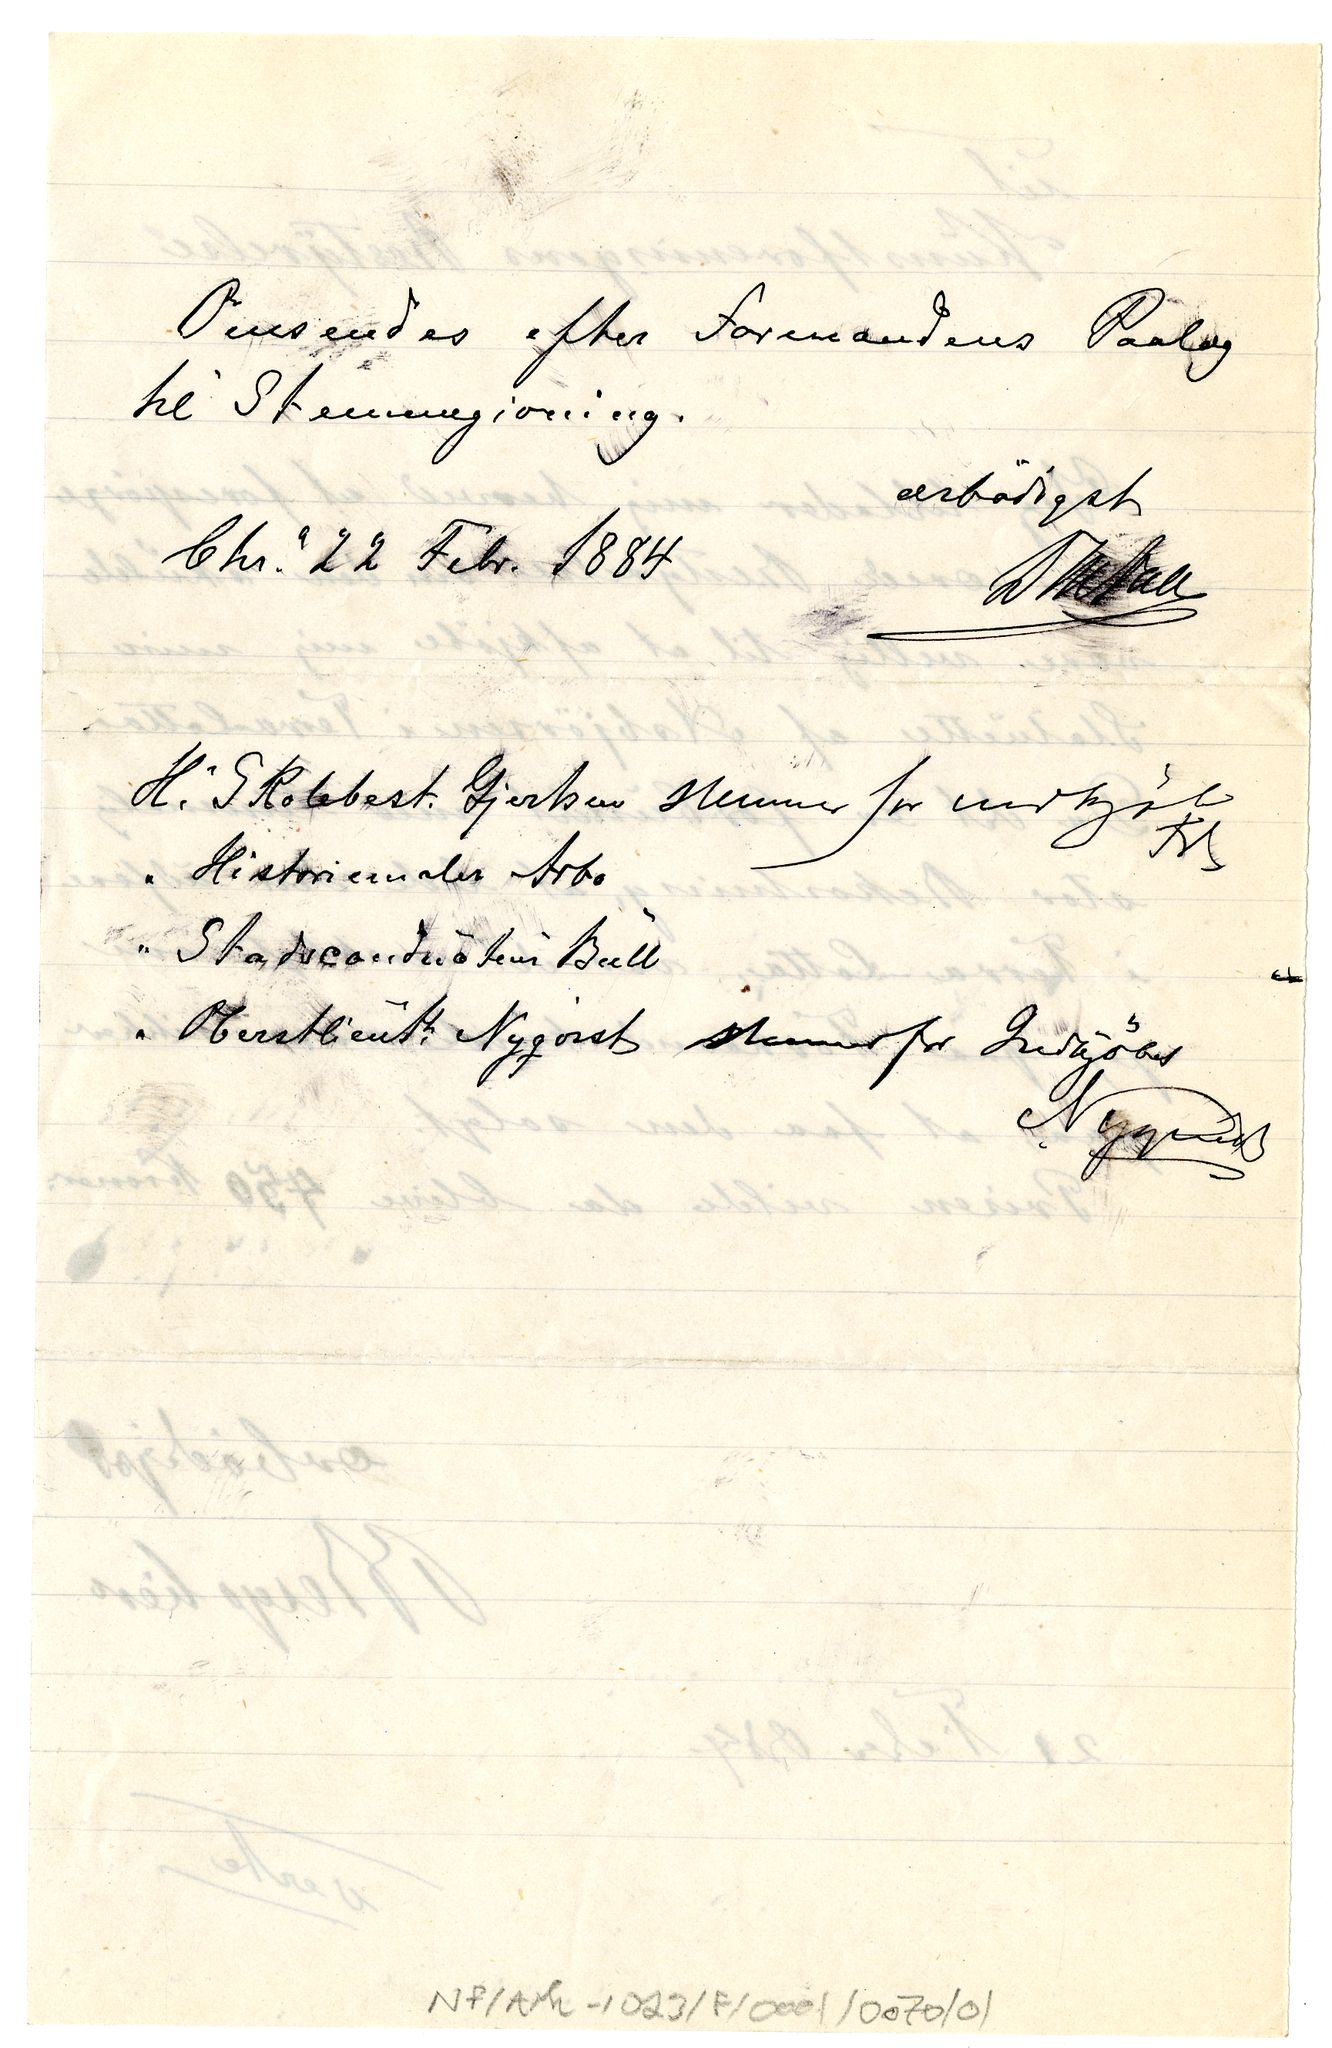 Omsendes efter Formandens Paalæg
til Stemmegivning.
ærbødigst
Chr.a 22 Febr. 1884
H. Skolebest. Gjertsen stemmer for indkjöb
" Historiemaler Arbo
" Stadsconducteur Bull
" Oberstlieutt. Nyqvist stemmer for Indkjöbet
Nyqvist
NF/Ark-1023/F/0001/0070/01